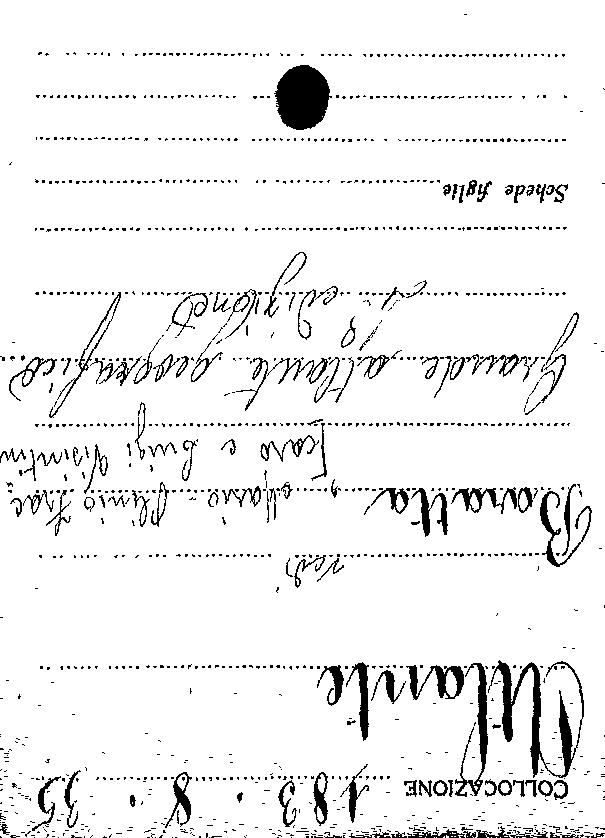 COLLOCAZIONE 183.8.35
Atlante
vedi
Baratta, Mario - Plinio Frac
[caro e Luigi Visintin
Grande atlante geografico
edizione
Schede figlie